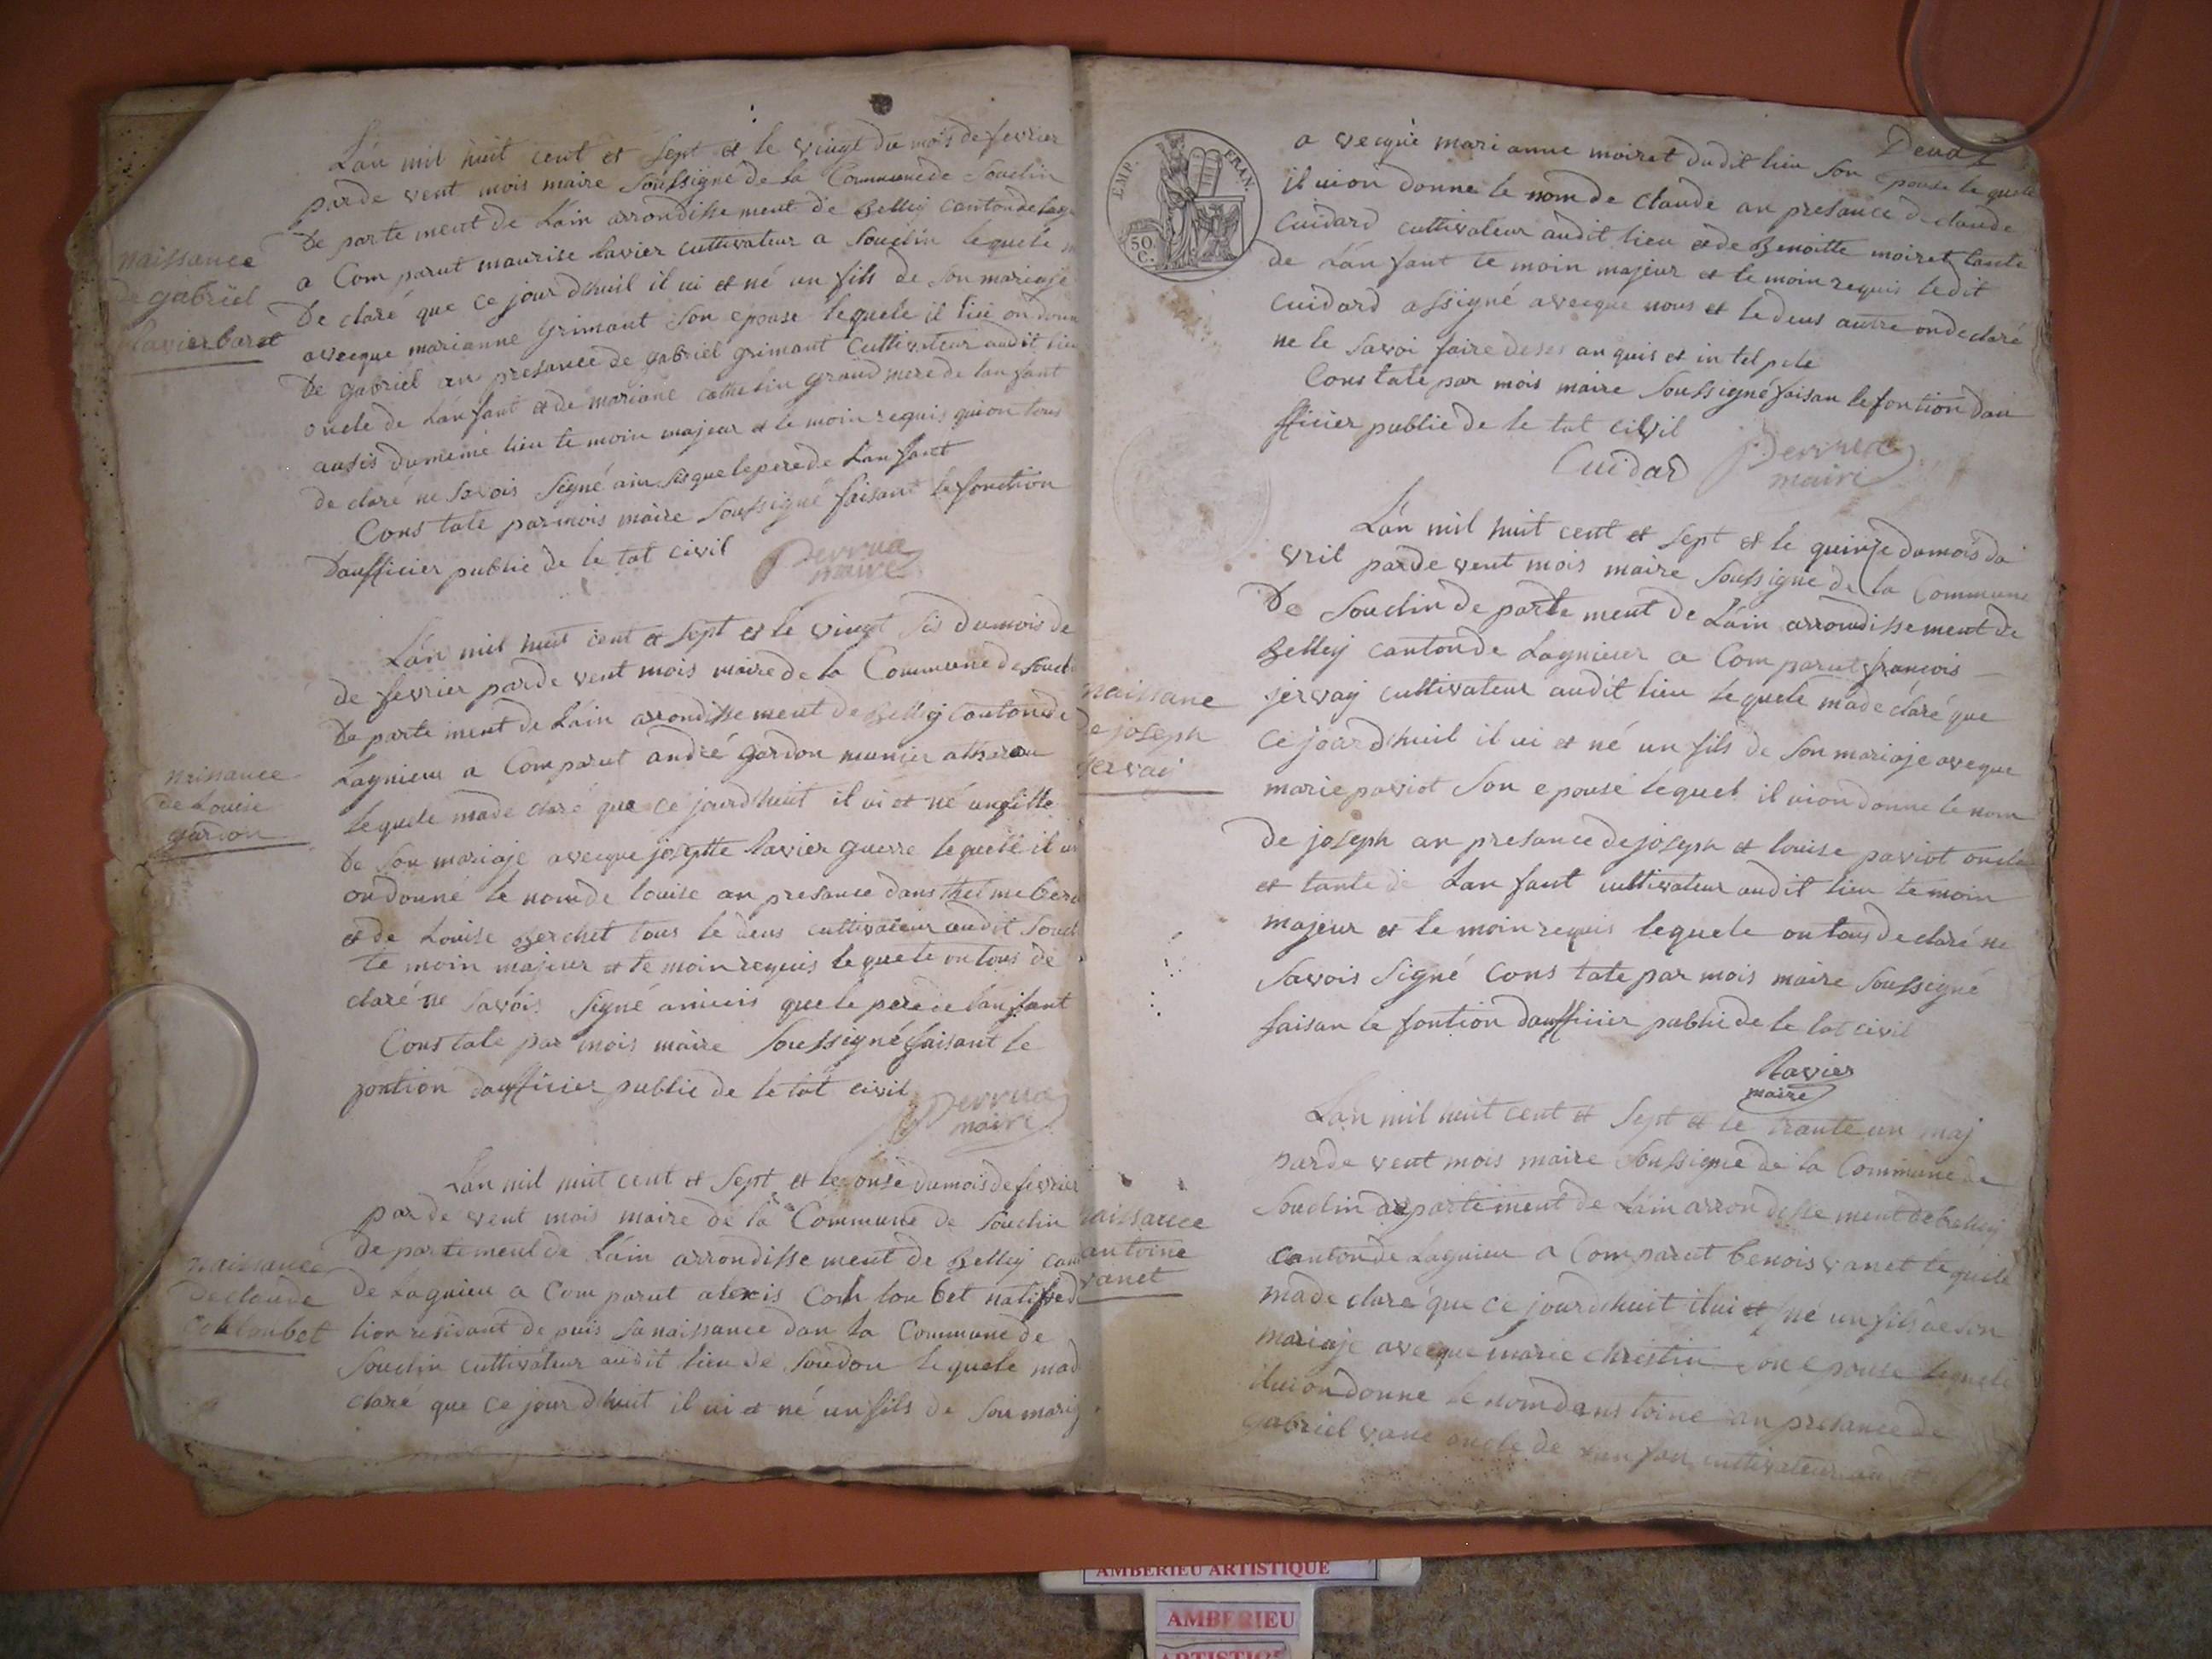 Lán mil huit cent et sept et le vingt du mois de fevrier
parde vent mois maire soussigne de la Commune de Souclin
De parte ment de Láin arrondisse ment de Belley canton de
a Com parut maurise Ravier cultivateur a Souclin lequele
De claré que ce jour dhuil il ui et né un fils de son mariaje
avecque marianne grimant son epouse lequele il lui on donn
De gabriel an presance de gabriel grimant Cultivateur audit lieu
oncle de Lánfant et de mariane cathelin grand mere de lanfant
ausis du meme lieu te moin majeur et te moin requis qui on tous
de claré ne savois signé ain sis que le pere de Lánfant
Cons tate par mois maire soussigné faisant le fonction
Daufficier public de le tat civil
Perrua
maire
naissance
de gabriel
Ravier baret
Lán mil huit cent et sept et le vingt sis du mois de
de fevrier parde vent mois maire de la Commune de Soucl
De parte ment de Láin arrondisse ment de Belley canton de
Lagnieux a Comparut andré gardon munier
lequele made claré que ce jourdhuit il ui et né un fille
De son mariaje avecque josephte Ravier guerre lequele il ui
on donné le nom de louise an presance dans thelme
et de Louise Berchet tous le deus cultivateur audit Soucl
te moin majeur et te moin requis lequele on tous de
claré ne savois signé ainsis que le pere de lanfant
Cons tate par mois maire soussigné faisant le
fontion daufficier public de le tat civil
Perrua
maire
naisance
de Louise
gardon
Lán mil huit cent et sept et le onse du mois de fevrier
parde vent mois maire de la Commune de Souclin
De partement de Láin arrondisse ment de Belley can
De Lagnieu a Com parut alexis Coh lon bet natif de
lion residant de puis sa naissance dan la Commune de
Souclin cultivateur audit lieu de Soudon lequele mad
claré que ce jour dhuit il ui et né un fils de son mariaj
naissance
de claude
cohlonbet
EMP. FRAN.
50 C.
Deux
a vecque marianne moiret dudit lieu son epouse lequele
il ui on donne le nom de claude an presance de claude
Cuidard cultivateur audit lieu et de Benoitte moiret tante
de Lánfant te moin majeur et te moin requis ledit
Cuidard assigné avecque nous et le deus autre on declaré
ne le savoi faire de ses an quis et in tel pele
Cons tate par mois maire soussigné faisan le fontion dau
fficier public de le tat civil
Cuidar
Perrua
maire
Lán mil huit cent et sept et le quinze du mois da
vril parde vent mois maire soussigne de la Commune
De Souclin de parte ment de Láin arrondisse ment de
Belley canton de Lagnieux a Com parut francois
jervay cultivateur audit lieu lequele made claré que
Ce jour dhuil il ui et né un fils de son mariaje avecque
marie paviot son epouse lequel il ui on donne le nom
de joseph an presance de joseph et louise paviot oncle
et tante de Lanfant cultivateur audit lieu te moin
majeur et te moin requis lequele on tous de claré ne
savois signé cons tate par mois maire soussigné
faisan le fontion daufficier public de le tat civil
Ravier
maire
naissane
de joseph
gervay
Lan mil huit cent et sept et le trante un maj
parde vent mois maire soussigne de la Commune de
Souclin departement de Láin arron disse ment de belley
canton de Lagnieu a Com parut benois vanet lequele
made claré que ce jour dhuit il ui et né un fils de son
mariaje avecque marie chrestin son epouse lequele
il ui on donne le nom dans toine an presance de
gabriel vane oncle de lanfan cultivateur au
naissance
antoine
vanet
AMBERIEU ARTISTIQUE
AMBERIEU
ARTISTIQUE